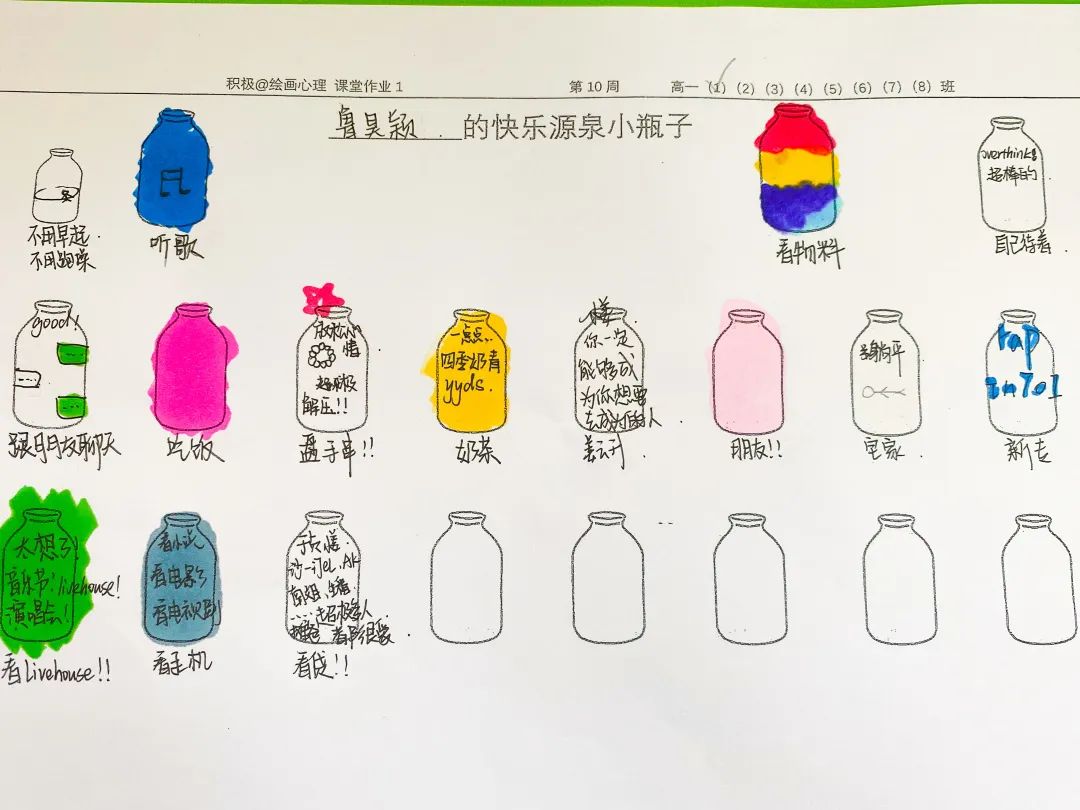 积极@绘画心理 课堂作业1 第10周 高一 (1) (2) (3) (4) (5) (6) (7) (8) 班
鲁昊颖 的快乐源泉小瓶子
不用早起
不用跑操
听歌
看物料
overthink
超棒的
自己待着
good!
跟朋友聊天
吃饭
放松心情
超积极
解压!!
盘手串!!
一点点
四季奶青
yyds.
奶茶
你一定
能够成
为你想要
去成为的人
朋友!!
躺平
宅家
rap
新专
太想了!
音乐节!livehouse!
演唱会!
看Livehouse!!
看小说
看电影
看电视剧
看手机
看展!!